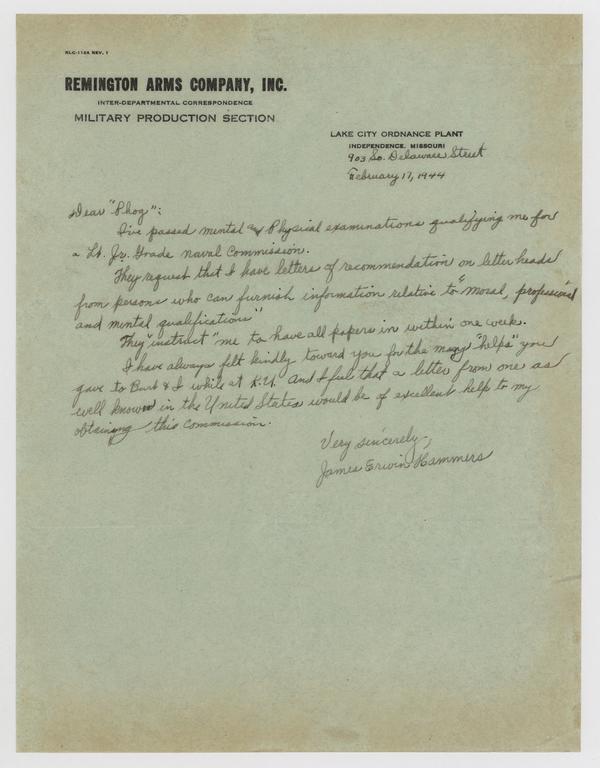 RLC-1106 REV. 1
REMINGTON ARMS COMPANY, INC.
INTER-DEPARTMENTAL CORRESPONDENCE
MILITARY PRODUCTION SECTION
LAKE CITY ORDNANCE PLANT
INDEPENDENCE, MISSOURI
903 So. Delaware Street
February 17, 1944
Dear "Phog":
I've passed mental and Physical examinations qualifying me for
a Lt. Jr. Grade naval Commission.
They request that I have letters of recommendation on letter heads
from persons who can furnish information relative to "moral, professional
and mental qualifications"
They "instruct" me to have all papers in within one week.
I have always felt kindly toward you for the many "helps" you
gave to Burt & I while at K.U. And I feel that a letter from one as
well known in the United States would be of excellent help to my
obtaining this Commission.
Very sincerely,
James Erwin Hammers